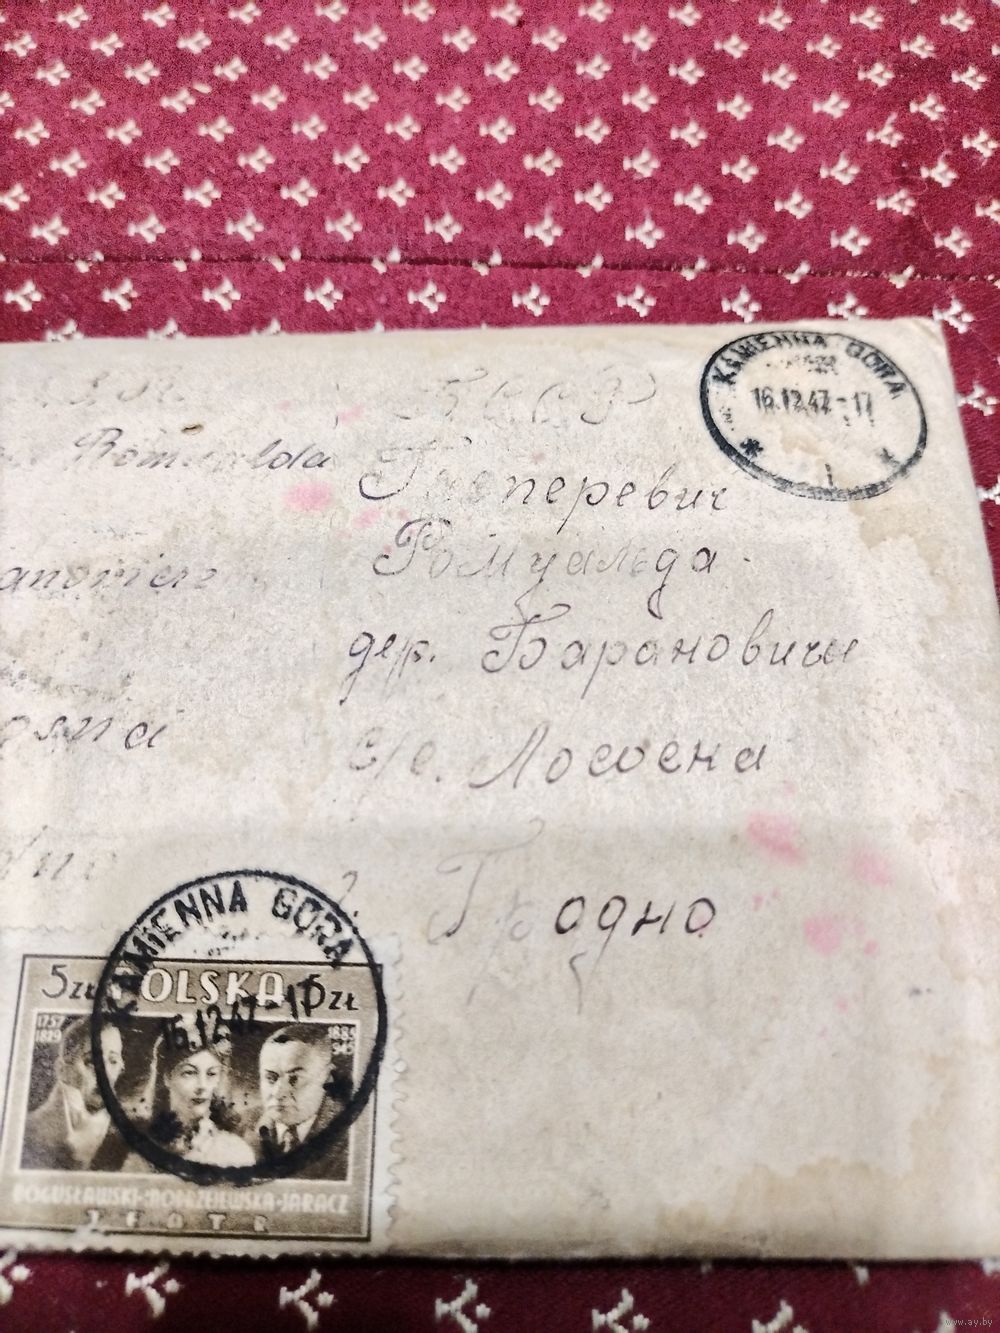 KAMIENNA GÓRA
16.12.47-17
БССР
Romualda
Гасперевич
Ромуальда
дер. Барановичи
с/с. Лососна
Гродно
KAMIENNA GÓRA
16.12.47-17
5 ZŁ POLSKA 5 ZŁ
1757 1829
1883 1945
BOGUSŁAWSKI-MODRZEJEWSKA-JARACZ
TEATR
www.ay.by